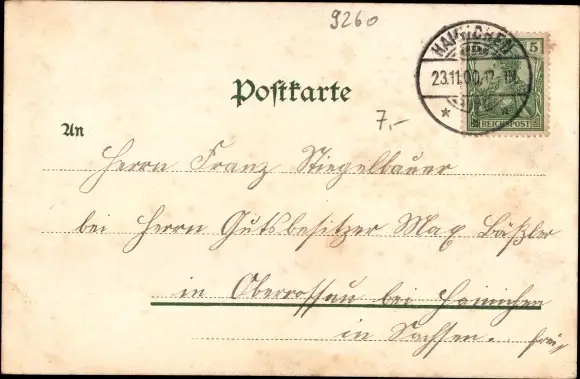 9260
HAINICHEN
5
23.11.00.
REICHSPOST
Postkarte
7,-
An
Herrn Franz Stiegelbauer
bei Herrn Gutsbesitzer Max Bäßler
in Oberrossau bei Hainichen
in Sachsen.